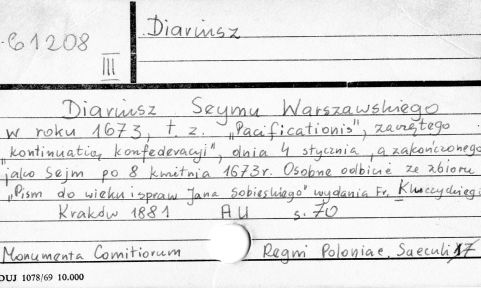 61208
III
Diariusz
Diariusz Seymu Warszawskiego
w roku 1673, t. z. "Pacificationis", zaczętego
"kontinuatią konfederacyi", dnia 4 stycznia, a zakończonego
jako Sejm po 8 kwietnia 1673r. Osobne odbicie ze zbioru
"Pism do wieku i spraw Jana Sobieskiego" wydania Fr. Kluczyckiego
Kraków 1881 AU s. 70
Monumenta Comitiorum Regni Poloniae. Saeculi 17
DUJ 1078/69 10.000